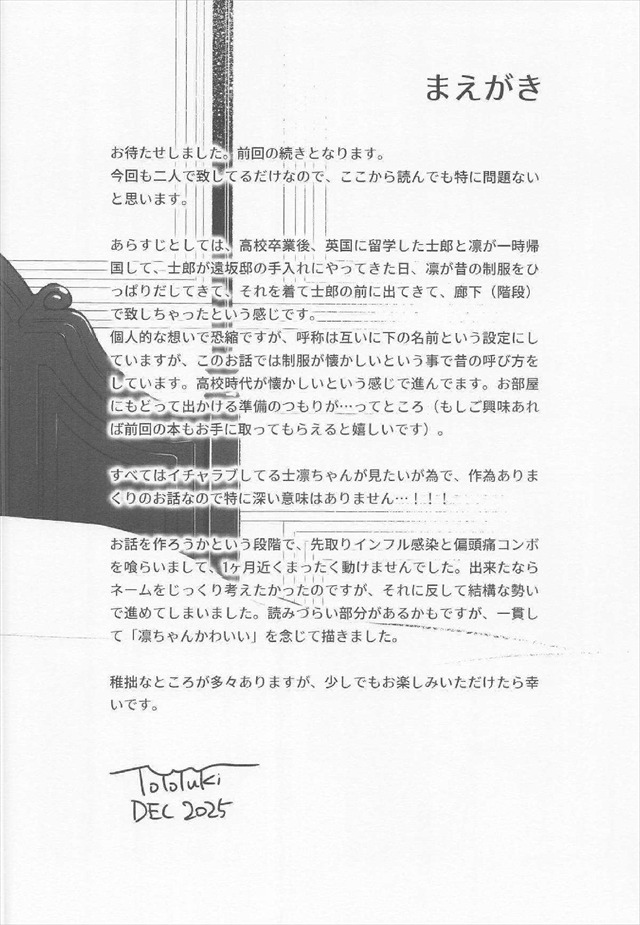 まえがき
お待たせしました。前回の続きとなります。
今回も二人で致してるだけなので、ここから読んでも特に問題ない
と思います。
あらすじとしては、高校卒業後、英国に留学した士郎と凛が一時帰
国して、士郎が遠坂邸の手入れにやってきた日、凛が昔の制服をひ
っぱりだしてきて、それを着て士郎の前に出てきて、廊下（階段）
で致しちゃったという感じです。
個人的な想いで恐縮ですが、呼称は互いに下の名前という設定にし
ていますが、このお話では制服が懐かしいという事で昔の呼び方を
しています。高校時代が懐かしいという感じで進んでます。お部屋
にもどって出かける準備のつもりが…ってところ（もしご興味あれ
ば前回の本もお手に取ってもらえると嬉しいです）。
すべてはイチャラブしてる士凛ちゃんが見たいが為で、作為ありま
くりのお話なので特に深い意味はありません…！！！
お話を作ろうかという段階で、先取りインフル感染と偏頭痛コンボ
を喰らいまして、1ヶ月近くまったく動けませんでした。出来たなら
ネームをじっくり考えたかったのですが、それに反して結構な勢い
で進めてしまいました。読みづらい部分があるかもですが、一貫し
て「凛ちゃんかわいい」を念じて描きました。
稚拙なところが多々ありますが、少しでもお楽しみいただけたら幸
いです。
ToToTuki
DEC 2025